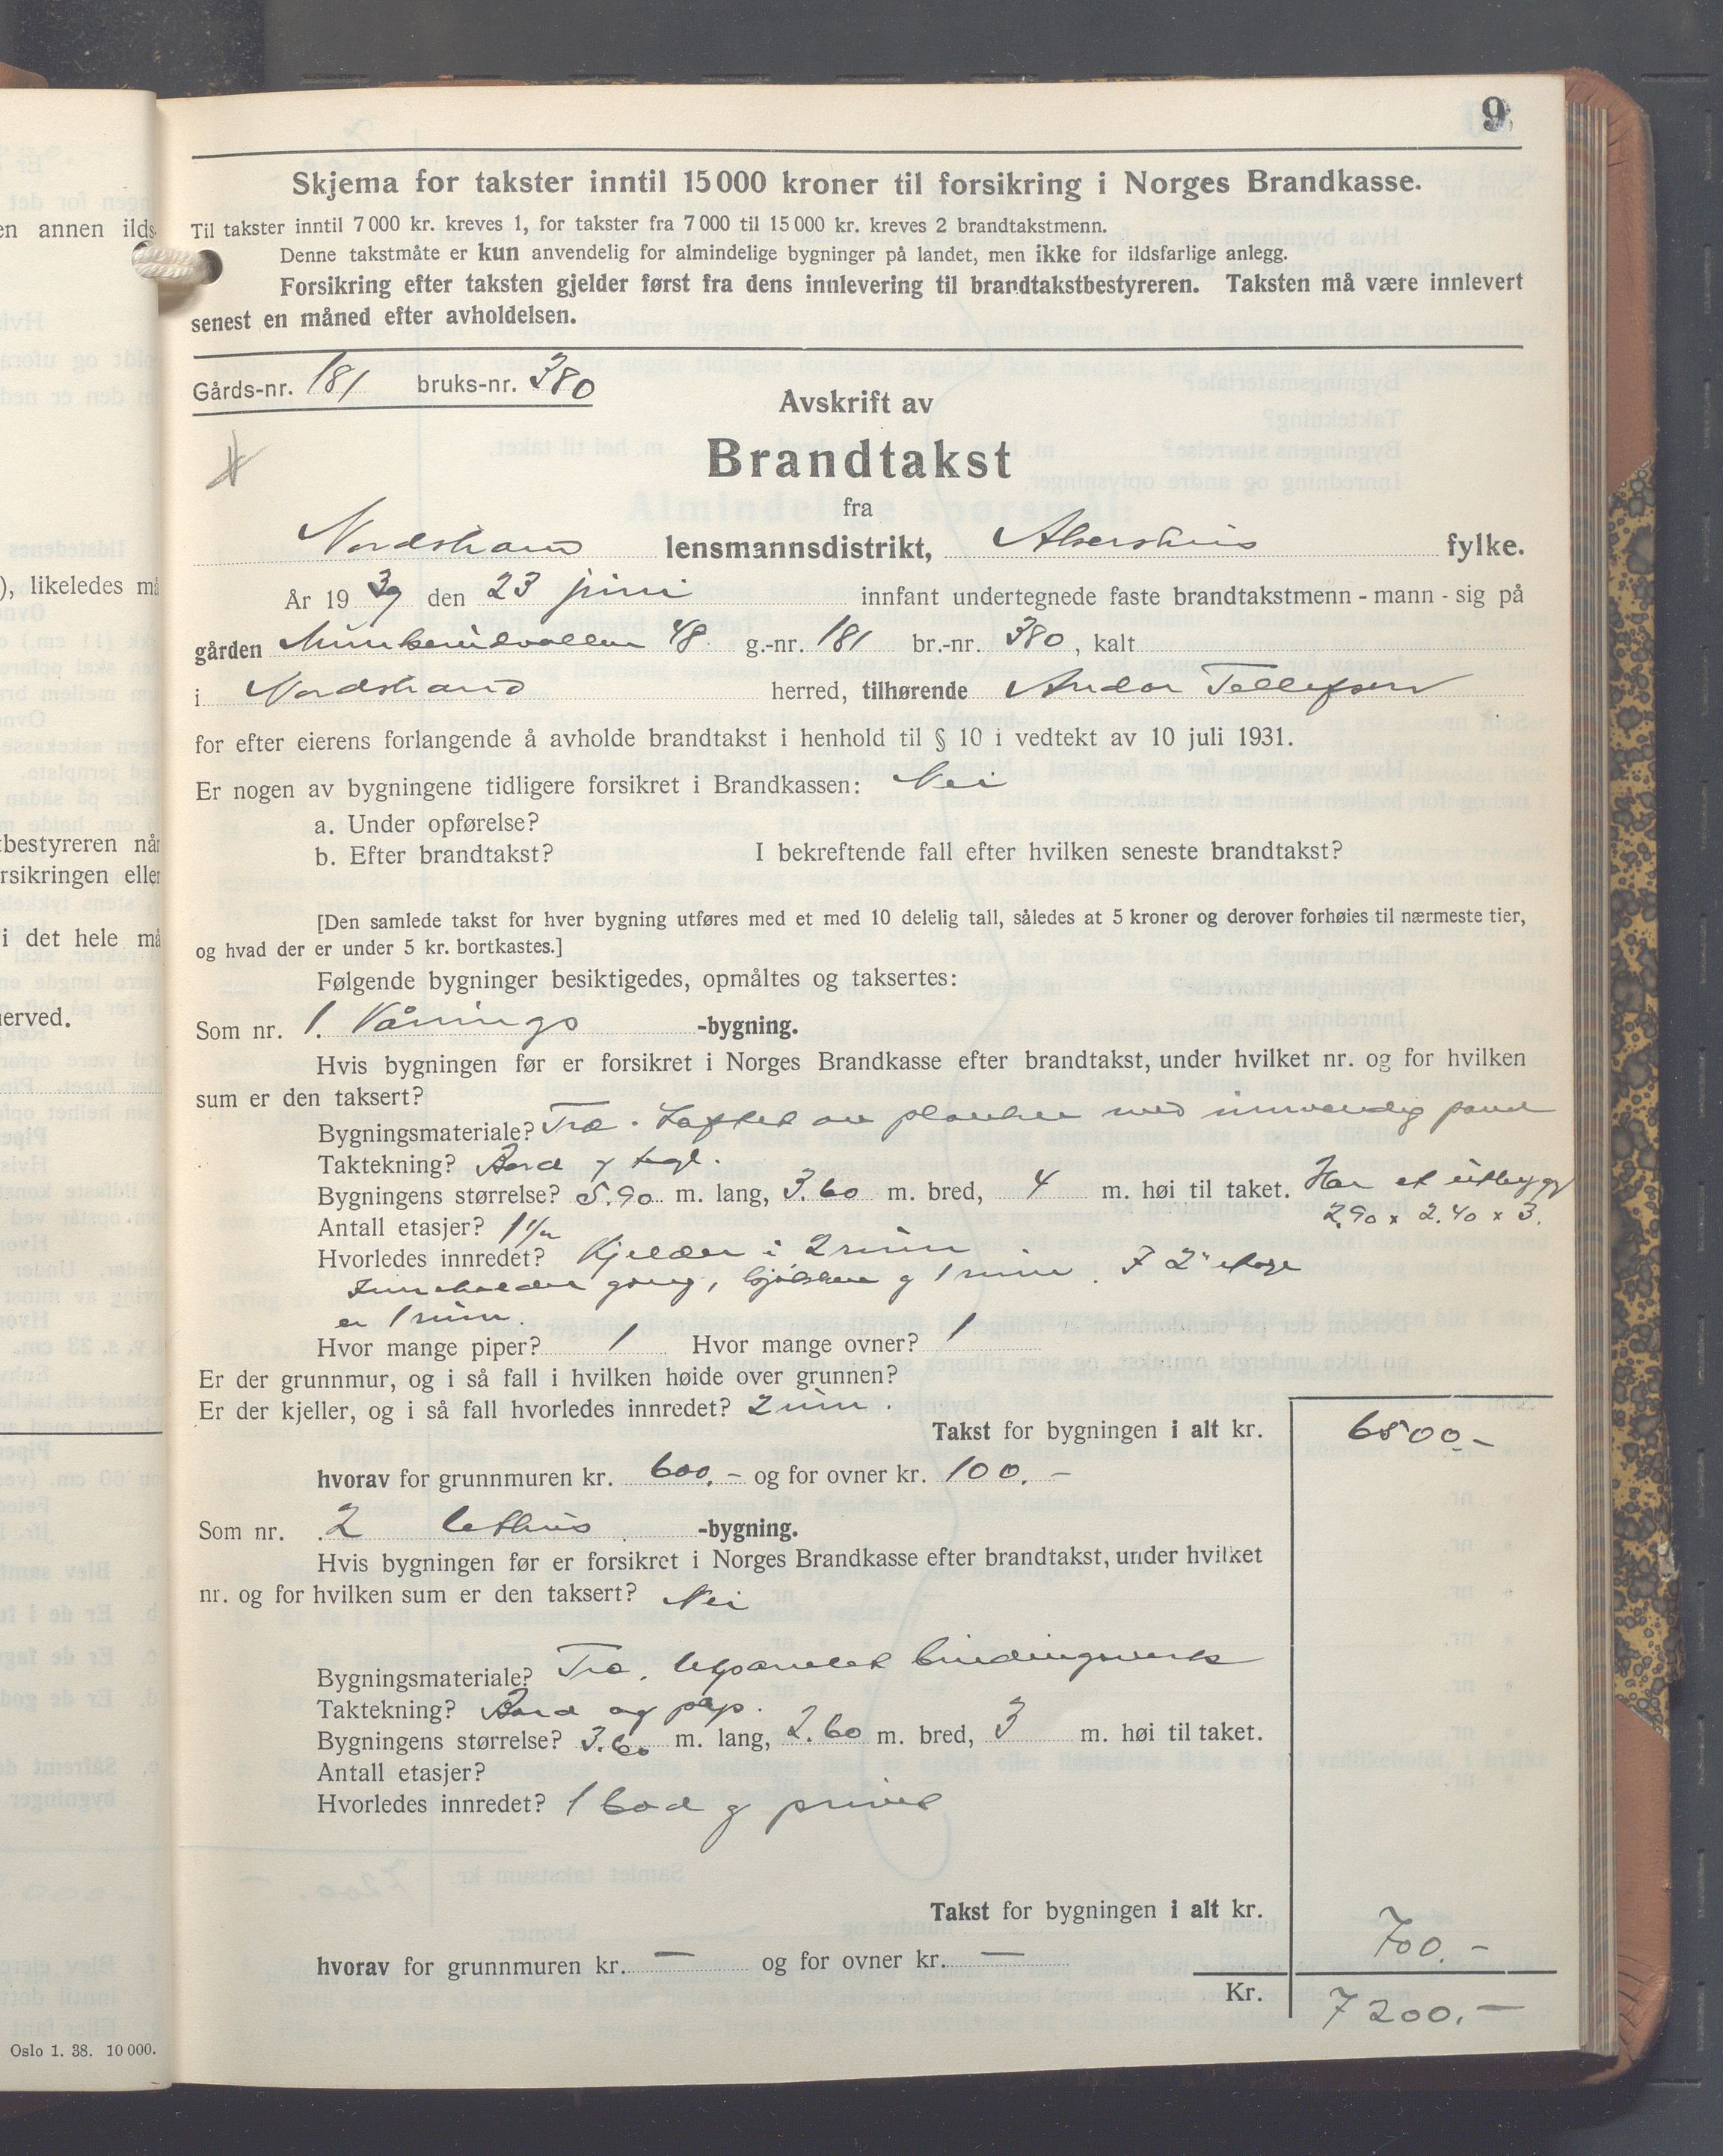 9
Skjema for takster inntil 15 000 kroner til forsikring i Norges Brandkasse.
Til takster inntil 7 000 kr. kreves 1, for takster fra 7 000 til 15 000 kr. kreves 2 brandtakstmenn.
Denne takstmåte er kun anvendelig for almindelige bygninger på landet, men ikke for ildsfarlige anlegg.
Forsikring efter taksten gjelder først fra dens innlevering til brandtakstbestyreren. Taksten må være innlevert
senest en måned efter avholdelsen.
Gårds-nr. 181 bruks-nr. 380
Avskrift av
Brandtakst
fra
Nordstrand lensmannsdistrikt, Akershus fylke.
År 1939 den 23 juni innfant undertegnede faste brandtakstmenn - mann - sig på
gården Munkerudvollen 48 g.-nr. 181 br.-nr. 380, kalt
i Nordstrand herred, tilhørende Andor Tellefsen
for efter eierens forlangende å avholde brandtakst i henhold til § 10 i vedtekt av 10 juli 1931.
Er nogen av bygningene tidligere forsikret i Brandkassen: Nei
a. Under opførelse?
b. Efter brandtakst? I bekreftende fall efter hvilken seneste brandtakst?
[Den samlede takst for hver bygning utføres med et med 10 delelig tall, således at 5 kroner og derover forhøies til nærmeste tier,
og hvad der er under 5 kr. bortkastes.]
Følgende bygninger besiktigedes, opmåltes og taksertes:
Som nr. 1. Vånings -bygning.
Hvis bygningen før er forsikret i Norges Brandkasse efter brandtakst, under hvilket nr. og for hvilken
sum er den taksert?
Bygningsmateriale? Tre. Laftet av planker med innvendig panel
Taktekning? Bord og tegl.
Bygningens størrelse? 5.90 m. lang, 3.60 m. bred, 4 m. høi til taket. Har et utbygg
2.90 x 2.40 x 3.
Antall etasjer? 1 1/2
Hvorledes innredet? Kjelder i 2 rum
Inneholder gang, kjøkken og 1 rum. I 2' etage
er 1 rum.
Hvor mange piper? 1 Hvor mange ovner? 1
Er der grunnmur, og i så fall i hvilken høide over grunnen?
Er der kjeller, og i så fall hvorledes innredet? 2 rum.
Takst for bygningen i alt kr. 6500.-
hvorav for grunnmuren kr. 600.- og for ovner kr. 100.-
Som nr. 2 Uthus -bygning.
Hvis bygningen før er forsikret i Norges Brandkasse efter brandtakst, under hvilket
nr. og for hvilken sum er den taksert? Nei
Bygningsmateriale? Tre. Utpanelet bindingsverk
Taktekning? Bord og papp.
Bygningens størrelse? 3.60 m. lang, 2.60 m. bred, 3 m. høi til taket.
Antall etasjer?
Hvorledes innredet? 1 bod og privet
Takst for bygningen i alt kr. 700.-
hvorav for grunnmuren kr. — og for ovner kr. —
Kr. 7200.-
en annen ilds-
), likeledes må
tbestyreren når
rsikringen eller
i det hele må
nerved.
Oslo 1. 38. 10 000.